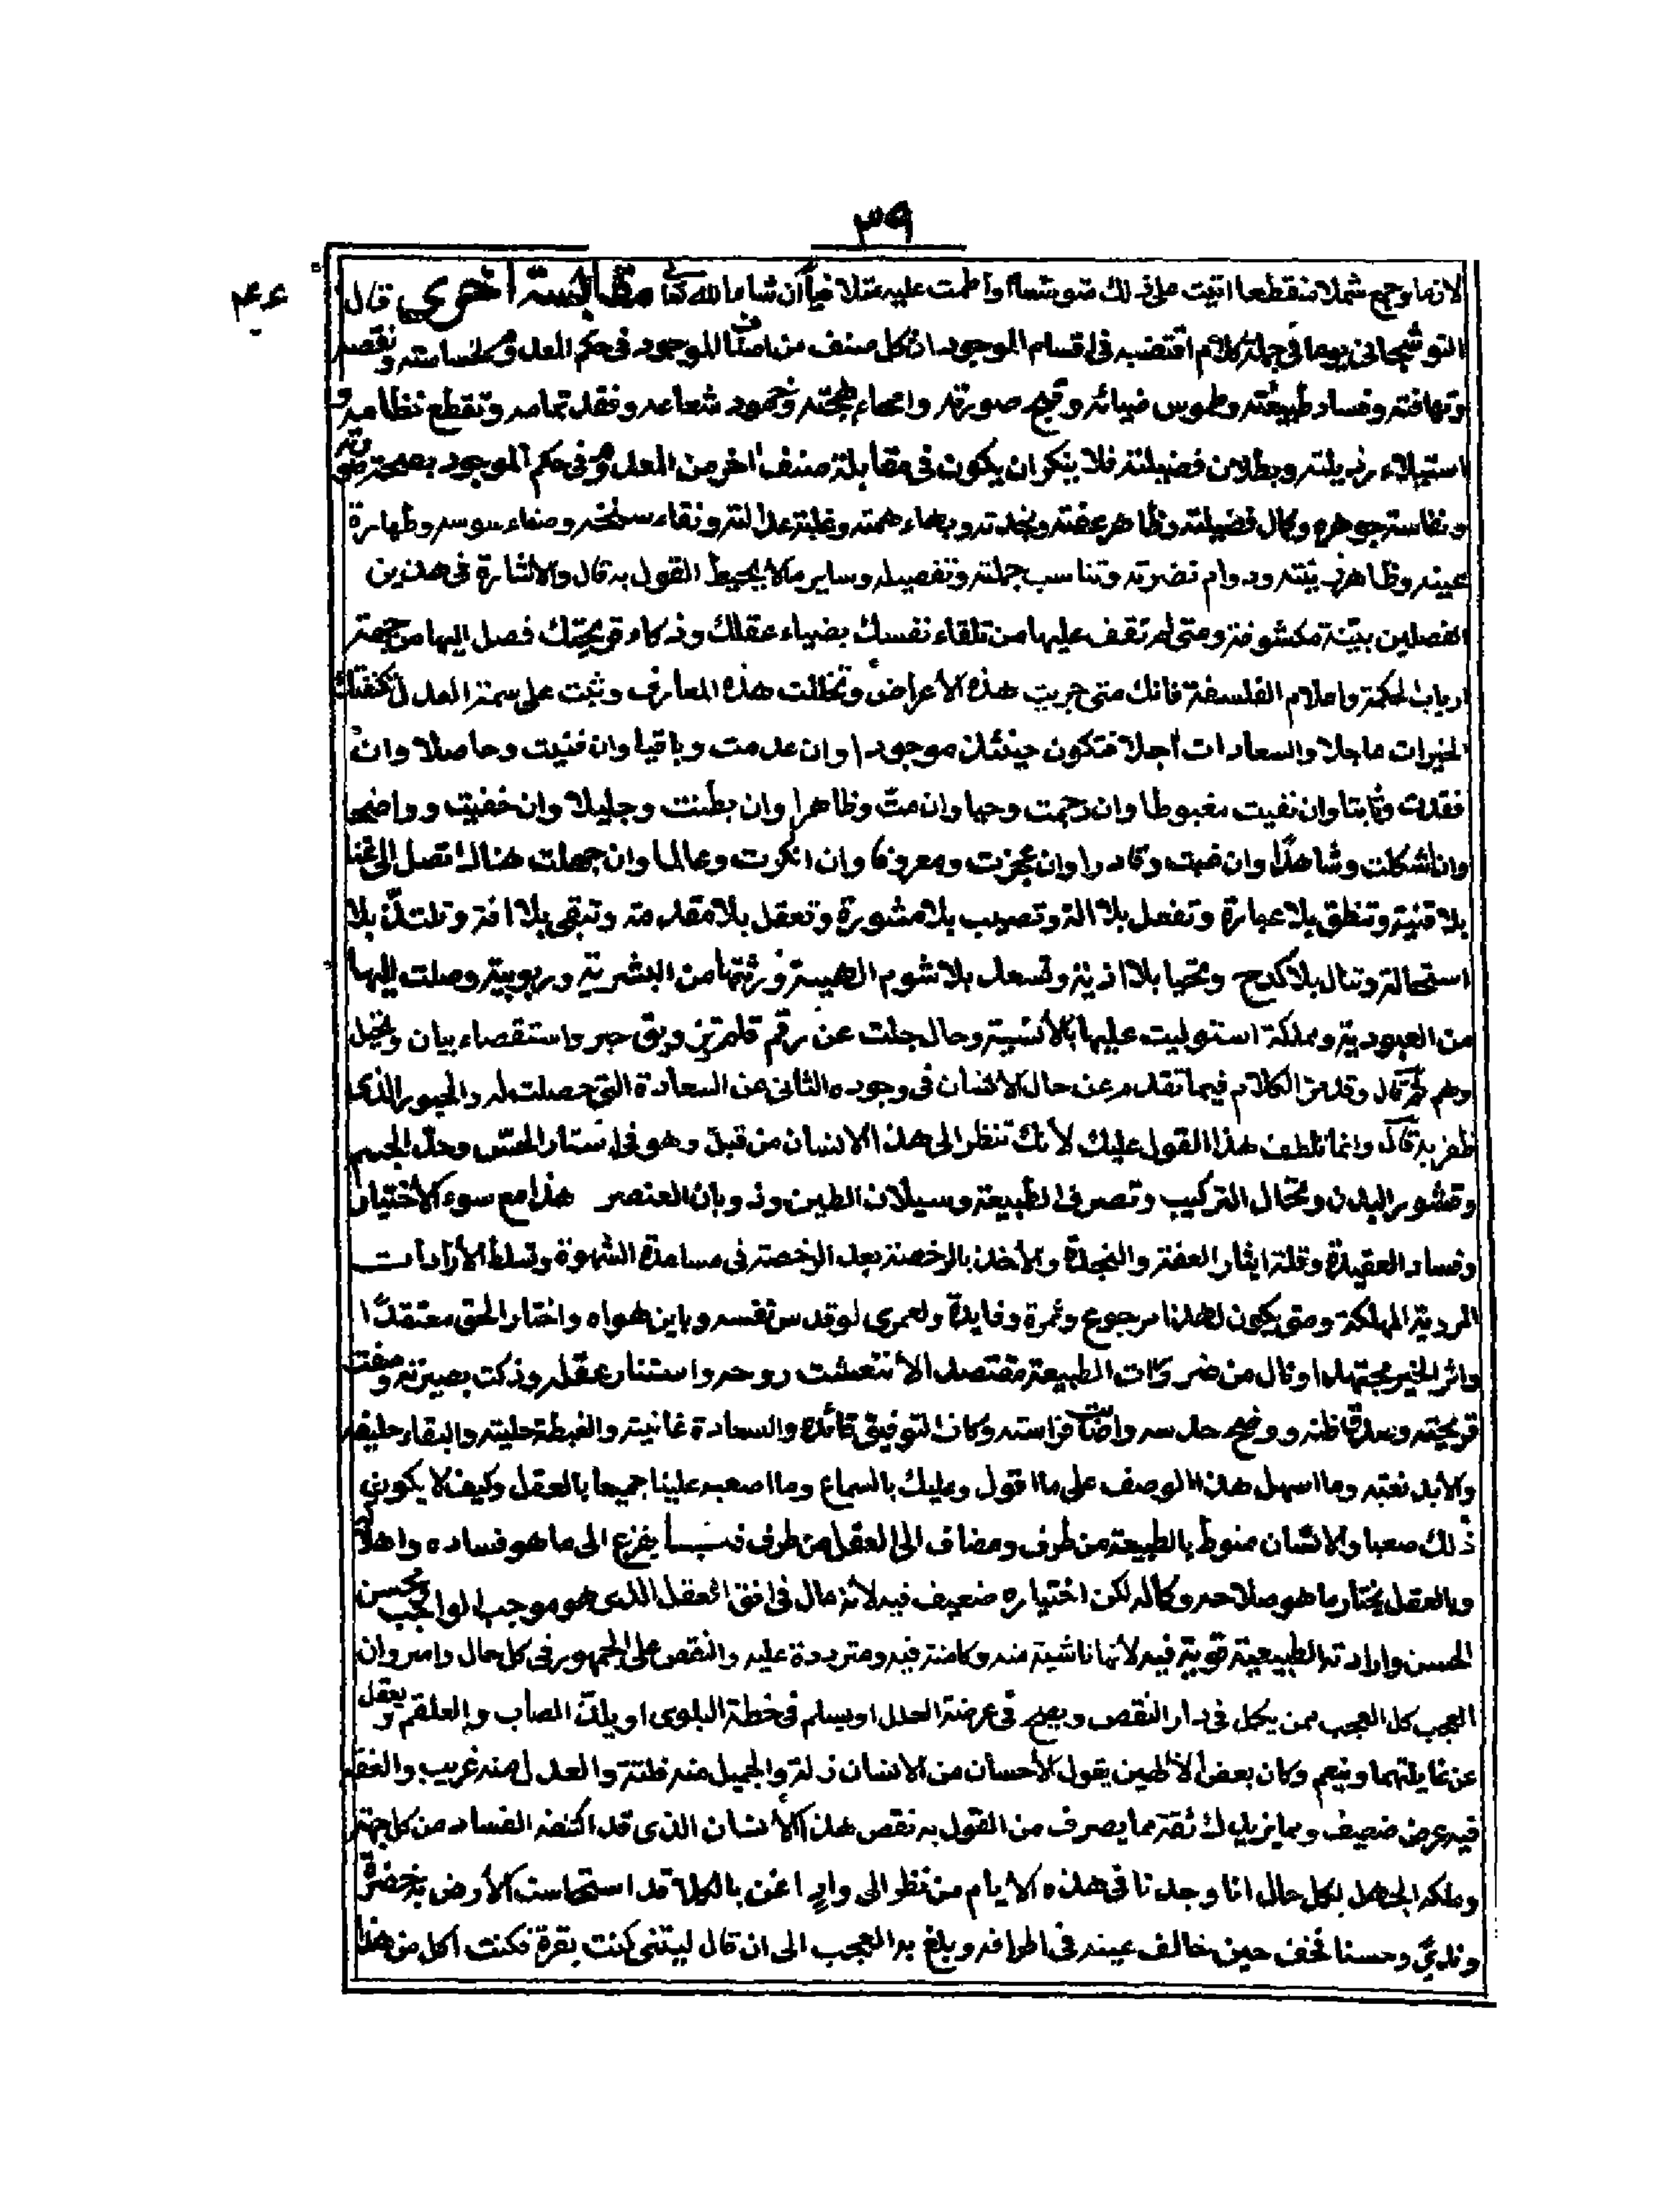 ٣٩
٤٤
لازما وجمع شملا منقطعا اتيت على ذلك متوسّعا واطلت عليه متلافيا ان شاء الله تعالى مقابسة اخرى قال
النوشجاني يوما في جملة كلام اقتضبه في اقسام الموجود ان كل صنف من اصناف الموجود في حكم المعدوم لخساسته ونقصه
وتهافته وفساد طبيعته وطموس ضيائه وقبح صورته وامحاء بهجته وخمود شعاعه وفقد تمامه وتقطع نظامه و
استيلاء رذيلته وبطلان فضيلته فلا ينكر ان يكون في مقابلة صنف اخر من المعدوم في حكم الموجود بصحة صورته
ونفاسة جوهره وكمال فضيلته وظاهر عفته ونجدته وبهاء همته وغلبة عدالته ونقاء سنخه وصفاء سوسه وطهارة
عينه وظاهر زينته ودوام نضرته وتناسب جملته وتفصيله وساير ما لا يحيط القول به قال والاشارة في هذين
الفصلين بيّنة مكشوفة ومتى لم تقف عليها من تلقاء نفسك بضياء عقلك وذكاء قريحتك فصل اليها من جهة
ارباب الحكمة واعلام الفلسفة فانك متى جريت هذه الاعراض وتخللت هذه المعارف وثبت على سمة العدل اكتنفتك
الخيرات عاجلا والسعادات اجلا فتكون حينئذ موجودا وان عدمت وباقيا وان فنيت وحاصلا وان
فقدت وثابتا وان نفيت مغبوطا وان رحمت وحيا وان متّ وظاهرا وان بطنت وجليلا وان خفيت وواضحا
وان اشكلت وشاهدًا وان غبت وقادرا وان عجزت ومعروفا وان انكرت وعالما وان جهلت هناك تصل الى غنا
بلا قنية وتنطق بلا عبارة وتفعل بلا الة وتصيب بلا مشورة وتعقل بلا مقدمة وتبقى بلا افة وتلتذّ بلا
استحالة وتنال بلا كدح وتحيا بلا اذية وتسعد بلا شوم الهية ورثتها من البشرية وربوبية وصلت اليها
من العبودية ومملكة استوليت عليها بالانسية وحال جلت عن رقم قلم تزويق حبر واستقصاء بيان وتخيل
وهم ثم قال وقد مرّ الكلام فيما تقدم عن حال الانسان في وجوده الثاني عن السعادة التي حصلت له والحبور الذي
ظفر به قال وانما تلطف هذا القول عليك لانك تنظر الى هذا الانسان من قبل وهو في استار الحس وحدّ الجسم
وقشور البدن ومحال التركيب وتصرف الطبيعة وسيلان الطين وذوبان العنصر هذا مع سوء الاختيار
وفساد العقيدة وقلة ايثار العفة والنجدة والاخذ بالرخصة بعد الرخصة في مساعدة الشهوة وتسلط الارادات
المردية المهلكة ومتى يكون لهذا مرجوع وثمرة وفايدة ولعمرى لو قدس نفسه وباين هواه واختار الحق معتقدًا
واثر الخير مجتهدا ونال من ضرورات الطبيعة مقتصدا لانتعشت روحه واستنار عقله وذكت بصيرته وصفت
قريحته وصدق ظنه ووضح حدسه واضاءت فراسته وكان التوفيق قائده والسعادة غانيته والغبطة حليته والبقاء حليفه
والابد نعته وما اسهل هذا الوصف على ما اقول وعليك بالسماع وما اصعبه علينا جميعا بالعقل وكيف لا يكون
ذلك صعبا والانسان منوط بالطبيعة من طرف ومضاف الى العقل من طرف يفزع الى ما هو فساده واهلاكه
وبالعقل يختار ما هو صلاحه وكماله لكن اختياره ضعيف فيه لانه مال في افق العقل الذى هو موجب الواجب ومحسن
الحسن وارادته الطبيعية قوية فيه لانها ناشية منه وكامنة فيه ومترددة عليه والنقص على الجمهور في كل حال وامر وان
العجب كل العجب ممن يكمل في دار النقص ويصح في عرضة العلل او يسلم في خطة البلوى او يلتذّ الصاب والعلقم ويغفل
عن غايلتهما وينعم وكان بعض الاولين يقول الاحسان من الانسان زلة والجميل منه فلتة والعدل منه غريب والعفة
فيه عرض ضعيف ومما يزيدك ثقة مما يصرف من القول به نقص هذا الانسان الذى قد اكتنفه الفساد من كل جهة
وملكه الجهل بكل حال انا وجدنا في هذه الايام من نظر الى وادٍ اغن بالكلاء قد استحالست الارض به خضرة
ونديّ وحسنا فحن حين خالف عينه في اطرافه وبلغ به العجب الى ان قال ليتنى كنت بقرة فكنت اكل من هذا